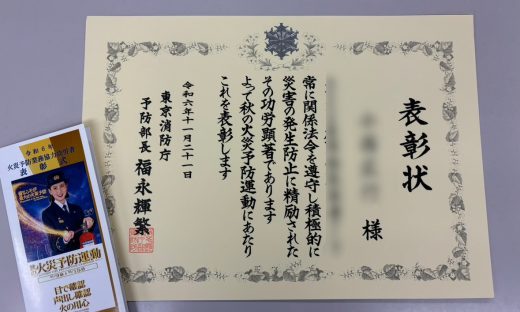 表彰状
様
常に関係法令を遵守し積極的に
災害の発生防止に精励された
その功労顕著であります
よって秋の火災予防運動にあたり
これを表彰します
令和六年十一月二十一日
東京消防庁
予防部長 福永輝繁
令和6年
火災予防業務協力功労者
表彰式
火災予防運動
目で確認
声出し確認
火の用心